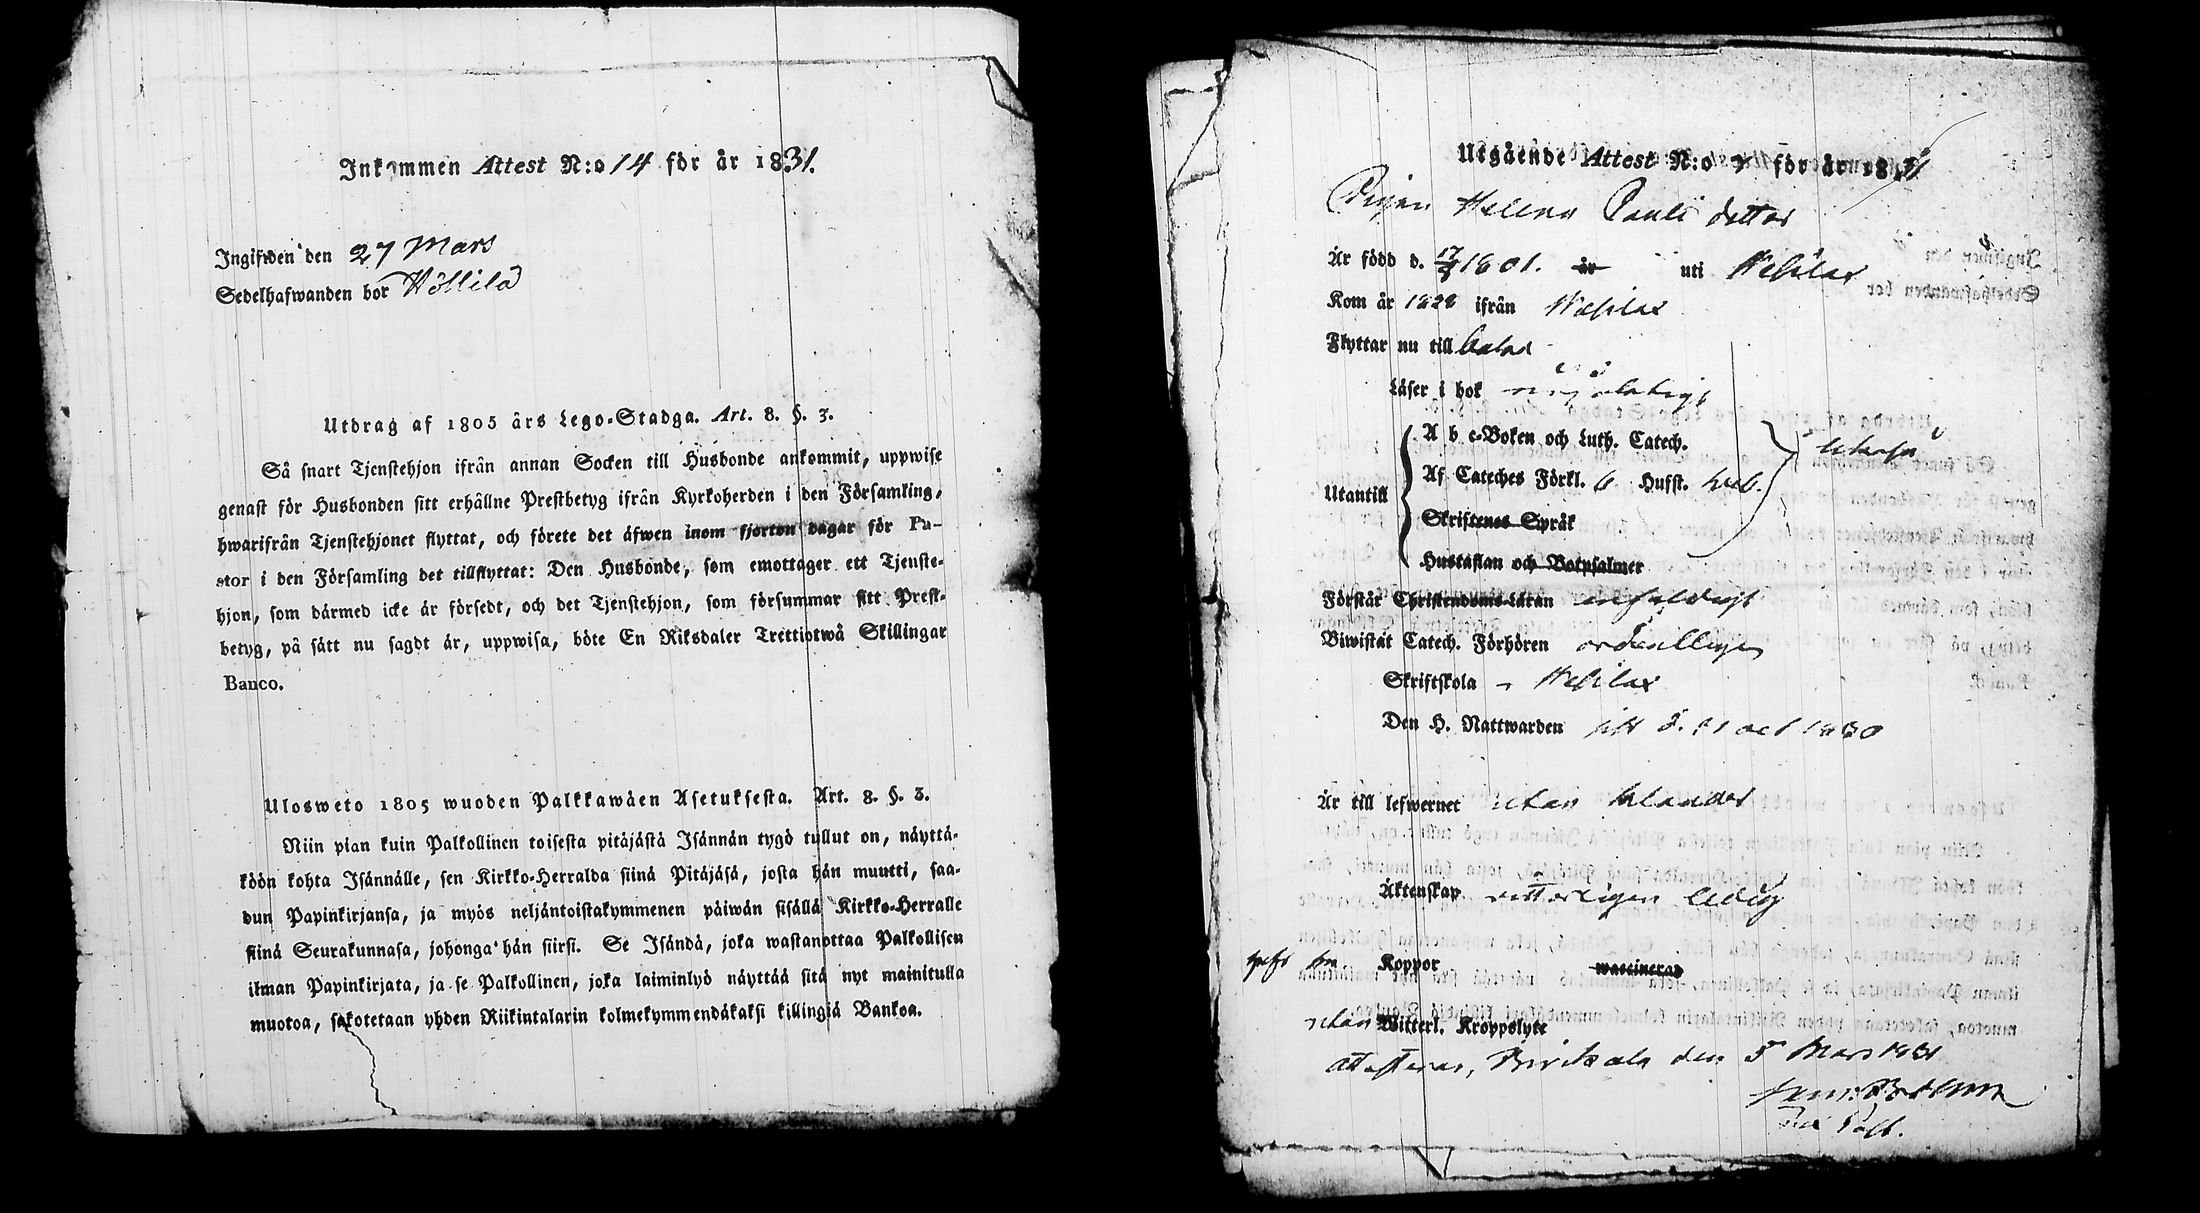 Inkommen Attest N:o 14 för år 1831.
Ingifwen den 27 Mars
Sedelhafwanden bor Höllilä
Utdrag af 1805 års Lego-Stadga. Art. 8. §. 3.
Så snart Tjenstehjon ifrån annan Socken till Husbonde ankommit, uppwise
genast för Husbonden sitt erhållne Prestbetyg ifrån Kyrkoherden i den Församling,
hwarifrån Tjenstehjonet flyttat, och förete det äfwen inom fjorton dagar för Pa-
stor i den Församling det tillflyttat: Den Husbonde, som emottager ett Tjenste-
hjon, som därmed icke är försedt, och det Tjenstehjon, som försummar sitt Prest-
betyg, på sätt nu sagdt är, uppwisa, böte En Riksdaler Trettiotwå Skillingar
Banco.
Ulosweto 1805 wuoden Palkkawäen Asetuksesta. Art. 8. §. 3.
Niin pian kuin Palkollinen toisesta pitäjästä Isännän tygö tullut on, näyttä-
köön kohta Isännälle, sen Kirkko-Herralda siinä Pitäjäsä, josta hän muutti, saa-
dun Papinkirjansa, ja myös neljäntoistakymmenen päiwän sisällä Kirkko-Herralle
siinä Seurakunnasa, johonga hän siirsi. Se Isändä, joka wastanottaa Palkollisen
ilman Papinkirjata, ja se Palkollinen, joka laiminlyö näyttää sitä nyt mainitulla
muotoa, sakotetaan yhden Riikintalarin kolmekymmendäkaksi killingiä Bankoa.
Utgående Attest N:o för år 1831
Pigan Helena Pauli dotter
Är född d. 1801. år uti Wesilax
Kom år 1828 ifrån Wesilax
Flyttar nu till
Läser i bok
A b c-Boken och Luth. Catech.
Utantill Af Cateches Förkl. 6 Hufst.
Skriftenes Språk
Hustaflan och Botpsalmer
Förstår Christendoms-Läran enfaldigt
Biwistat Catech. Förhören ordentligen
Skriftskola Wesilax
Den H. Nattwarden sist d. 31 oct 1830
Är till lefwernet utan klander
Äktenskap wetterligen ledig
Koppor waccinerad
utan Witterl. Kroppslyte
attesteras, Birkala den 5 Mars 1831